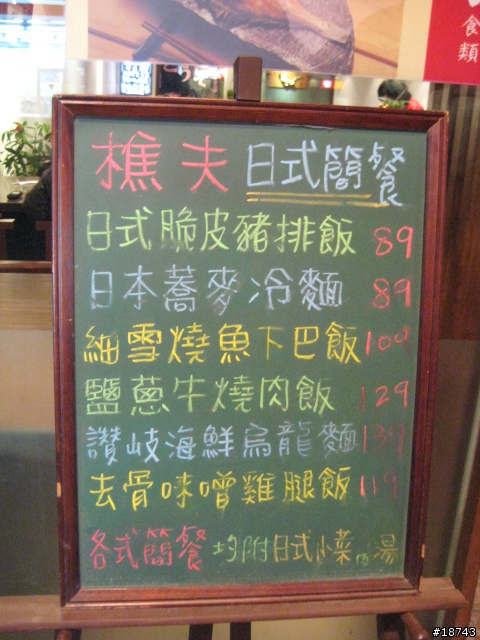 食
類
樵夫 日式簡餐
日式脆皮豬排飯 89
日本蕎麥冷麵 89
細雪燒魚下巴飯 109
鹽蔥牛燒肉飯 129
讚岐海鮮烏龍麵 139
去骨味噌雞腿飯 119
各式簡餐 均附日式小菜 湯
#18743